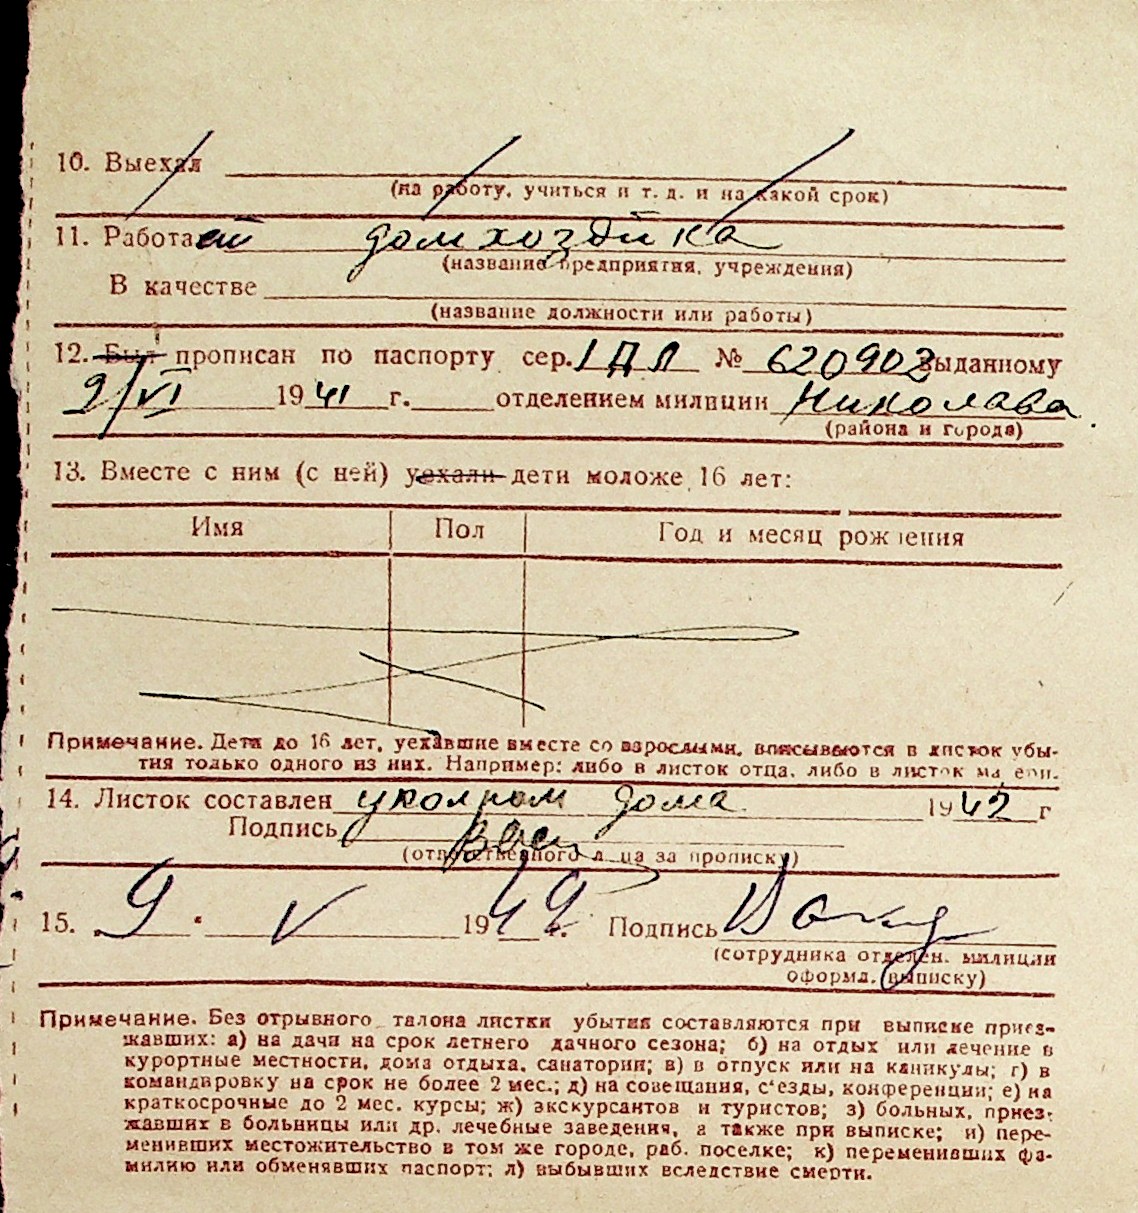 10. Выехал
(на работу, учиться и т. д. и на какой срок)
11. Работает домхозяйка
(название предприятия, учреждения)
В качестве
(название должности или работы)
12. Был прописан по паспорту сер. I ДЛ № 620902 выданному
2/VI 1941 г. отделением милиции Николаева
(района и города)
13. Вместе с ним (с ней) уехали дети моложе 16 лет:
Имя Пол Год и месяц рождения
Примечание. Дети до 16 лет, уехавшие вместе со взрослыми, вписываются в листок убы-
тия только одного из них. Например: либо в листок отца, либо в листок матери.
14. Листок составлен дома 1942 г
Подпись
(ответственного лица за прописку)
15. 9. V 1942 г. Подпись
(сотрудника отделен. милиции
оформл. выписку)
Примечание. Без отрывного талона листки убытия составляются при выписке приез-
жавших: а) на дачи на срок летнего дачного сезона; б) на отдых или лечение в
курортные местности, дома отдыха, санатории; в) в отпуск или на каникулы; г) в
командировку на срок не более 2 мес.; д) на совещания, с'езды, конференции; е) на
краткосрочные до 2 мес. курсы; ж) экскурсантов и туристов; з) больных, приез-
жавших в больницы или др. лечебные заведения, а также при выписке; и) пере-
менивших местожительство в том же городе, раб. поселке; к) переменивших фа-
милию или обменявших паспорт; л) выбывших вследствие смерти.